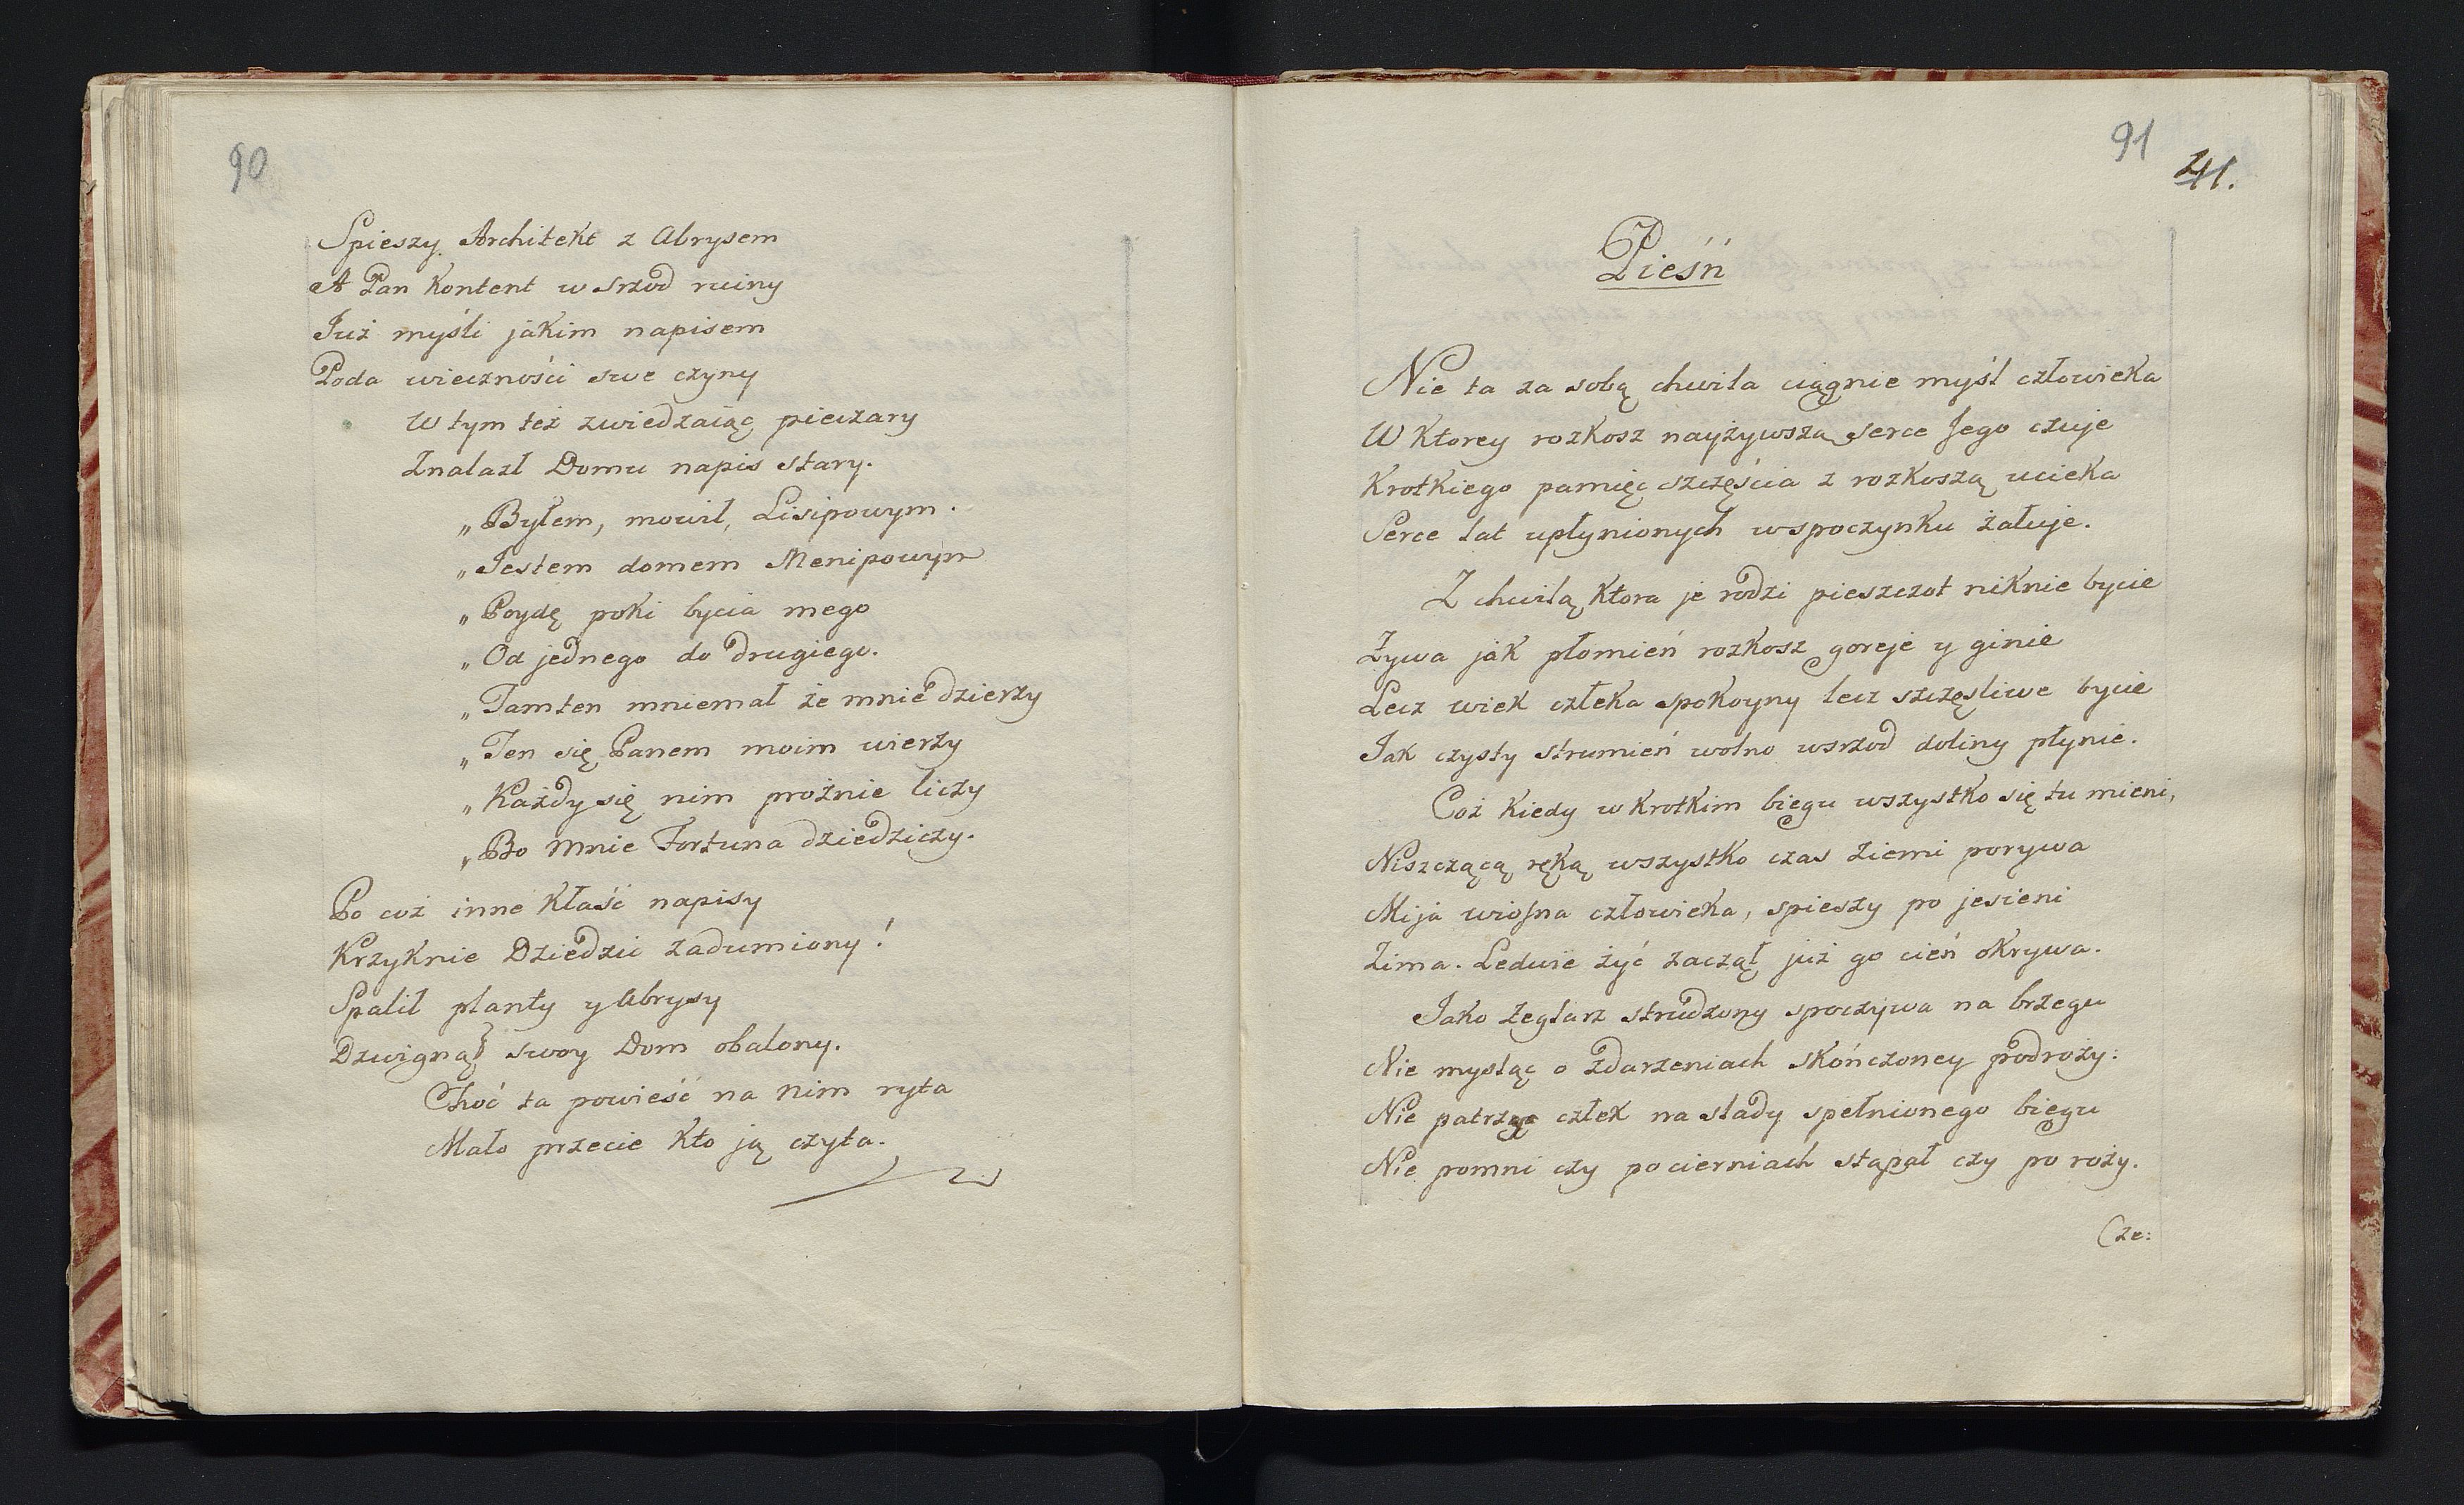 90
Spieszy Architekt z Abrysem
A Pan kontent w srzod ruiny
Już myśli jakim napisem
Poda wieczności swe czyny
W tym też zwiedzaiąc pieczary
Znalazł Domu napis stary.
„Byłem, mowił, Lisipowym.
„Jestem domem Menipowym
„Poydę poki bycia mego
„Od jednego do drugiego.
„Tamten mniemał że mnie dzierzy
„Ten się Panem moim wierzy
„Każdy się nim prożnie liczy
„Bo mnie Fortuna dziedziczy.
Po coż inne kłaść napisy
Krzyknie Dziedzic zadumiony!
Spalił planty y Abrysy
Dzwignął swoy Dom obalony.
Choć ta powieść na nim ryta
Mało przecie kto ją czyta.
91
41.
Pieśń
Nie ta za sobą chwila ciągnie myśl człowieka
W ktorey rozkosz nayżywszą serce Jego czuje
Krotkiego pamięc szczęścia z rozkoszą ucieka
Serce lat upłynionych wspoczynku żałuje.
Z chwilą ktora je rodzi pieszczot niknie bycie
Żywa jak płomień rozkosz goreje y ginie
Lecz wiek człeka spokoyny lecz szczęsliwe bycie
Jak czysty strumień wolno wsrzod doliny płynie.
Coż kiedy w krotkim biegu wszystko się tu mieni,
Niszczącą ręką wszystko czas ziemi porywa
Mija wiosna człowieka, spieszy po jesieni
Zima. Ledwie żyć zaczął już go cień okrywa.
Jako żeglarz strudzony spoczywa na brzegu
Nie mysląc o zdarzeniach skończoney podroży:
Nie patrząc człek na slady spełnionego biegu
Nie pomni czy po cierniach stąpał czy po roży.
Cze: